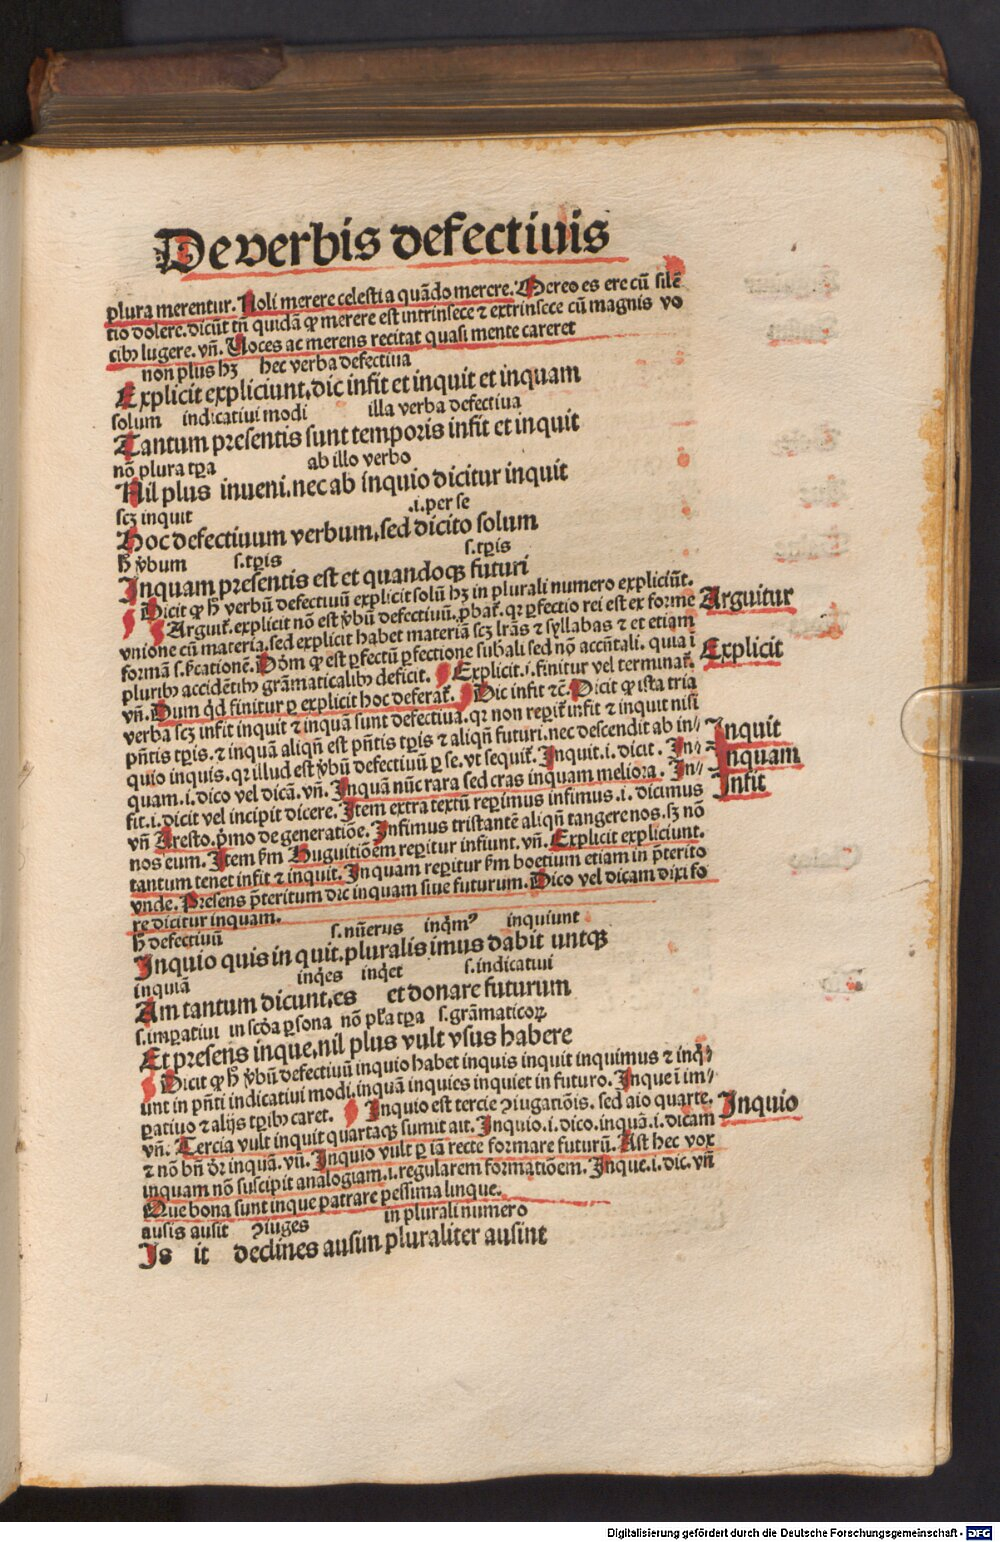 De verbis defectiuis
plura merentur. Noli merere celesti a quādo mercre. Mereo es ere cū silē
tio dolere. dicūt tñ quidā ꝙ merere est intrinsece ⁊ extrinsece cū magnis vo
cibꝫ lugere. vñ. Uoces ac merens recitat quasi mente careret
non plus hꝫ hec verba defectiua
Explicit expliciunt, dic infit et inquit et inquam
solum indicatiui modi illa verba defectiua
Tantum presentis sunt temporis infit et inquit
nō plura tꝑa ab illo verbo
Nil plus inueni. nec ab inquio dicitur inquit
scꝫ inquit .i. per se
Hoc defectiuum verbum, sed dicito solum
h̄ v̄bum s. tꝑis s. tꝑis
Inquam presentis est et quandoqꝫ futuri
Dicit ꝙ h̄ verbū defectiuū explicit solū hꝫ in plurali numero expliciūt.
Arguit̄. explicit nō est v̄bū defectiuū. ꝓbat̄. qꝛ ꝑfectio rei est ex forme
Arguitur
vnione cū materia. sed explicit habet materiā scꝫ lrās ⁊ syllabas ⁊ et etiam
formā s. p̄catione. Dōm ꝙ est ꝑfectū ꝑfectione subali sed nō accn̄tali. quia ī
Explicit
pluribꝫ accidētibꝫ grāmaticalibꝫ deficit. Explicit .i. finitur vel terminat̄.
vñ. Dum qd̓ finitur ꝑ explicit hoc deferat̄. Dic infit ⁊c̄. Dicit ꝙ ista tria
verba scꝫ infit inquit ⁊ inquā sunt defectiua. qꝛ non reꝑit̄ infit ⁊ inquit nisi
pn̄tis tꝑis. ⁊ inquā aliqñ est pn̄tis tꝑis ⁊ aliqñ futuri. nec descendit ab in⸗
Inquit
quio inquis. qꝛ illud est v̄bū defectiuū ꝑ se. vt sequit̄. Inquit .i. dicit. In⸗
Inquam
quam .i. dico vel dicā. vñ. Inquā nūc rara sed cras inquam meliora. In⸗
Infit
fit .i. dicit vel incipit dicere. Item extra textū reꝑimus infimus .i. dicimus
vñ Aresto. pͥmo de generatiōe. Infimus tristantē aliqñ tangere nos. sꝫ nō
nos eum. Item f̄m Huguitiōem reꝑitur infiunt. vñ. Explicit expliciunt.
tantum tenet infit ⁊ inquit. Inquam reꝑitur f̄m boetium etiam in p̄terito
vnde. Presens p̄teritum dic inquam siue futurum. Dico vel dicam dixi fo
re dicitur inquam.
h̄ defectiuū s. nūerus inqͥmꝰ inquiunt
Inquio quis in quit. pluralis imus dabit untqꝫ
inquiā inqͥes inqͥet s. indicatiui
Am tantum dicunt, es et donare futurum
s. imꝑatiui in scd̓a ꝑsona nō pl̓a tꝑa s. grāmaticoꝝ
Et presens inque, nil plus vult vsus habere
Dicit ꝙ h̄ v̄bū defectiuū inquio habet inquis inquit inquimus ⁊ inqͥ⸗
unt in pn̄ti indicatiui modi. inquā inquies inquiet in futuro. Inque ī im⸗
ꝑatiuo ⁊ alijs tꝑibꝫ caret. Inquio est tercie ꝯiugatiōis. sed aio quarte.
Inquio
vñ. Tercia vult inquit quartaqꝫ sumit ait. Inquio .i. dico. inquā .i. dicam
⁊ nō bñ dr̄ inquā. vñ. Inquio vult ꝑ iā recte formare futurū. Ast hec vox
inquam nō suscipit analogiam .i. regularem formatiōem. Inque .i. dic. vñ
Que bona sunt inque patrare pessima linque.
ausis ausit ꝯiuges in plurali numero
Is it declines ausim pluraliter ausint
Digitalisierung gefördert durch die Deutsche Forschungsgemeinschaft - DFG